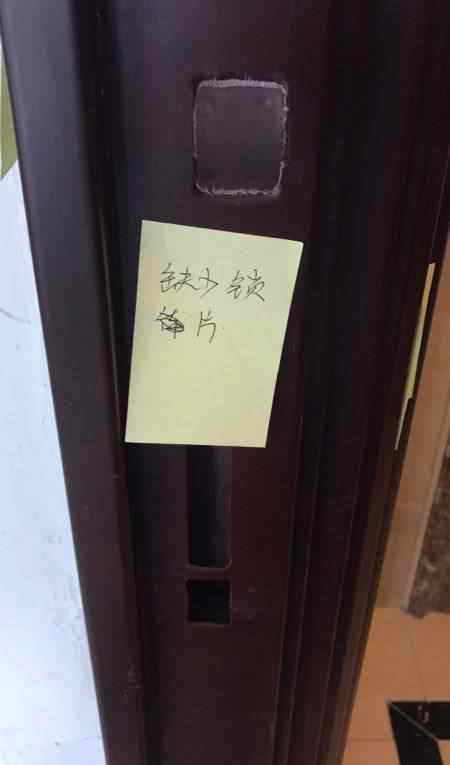 缺少锁
片